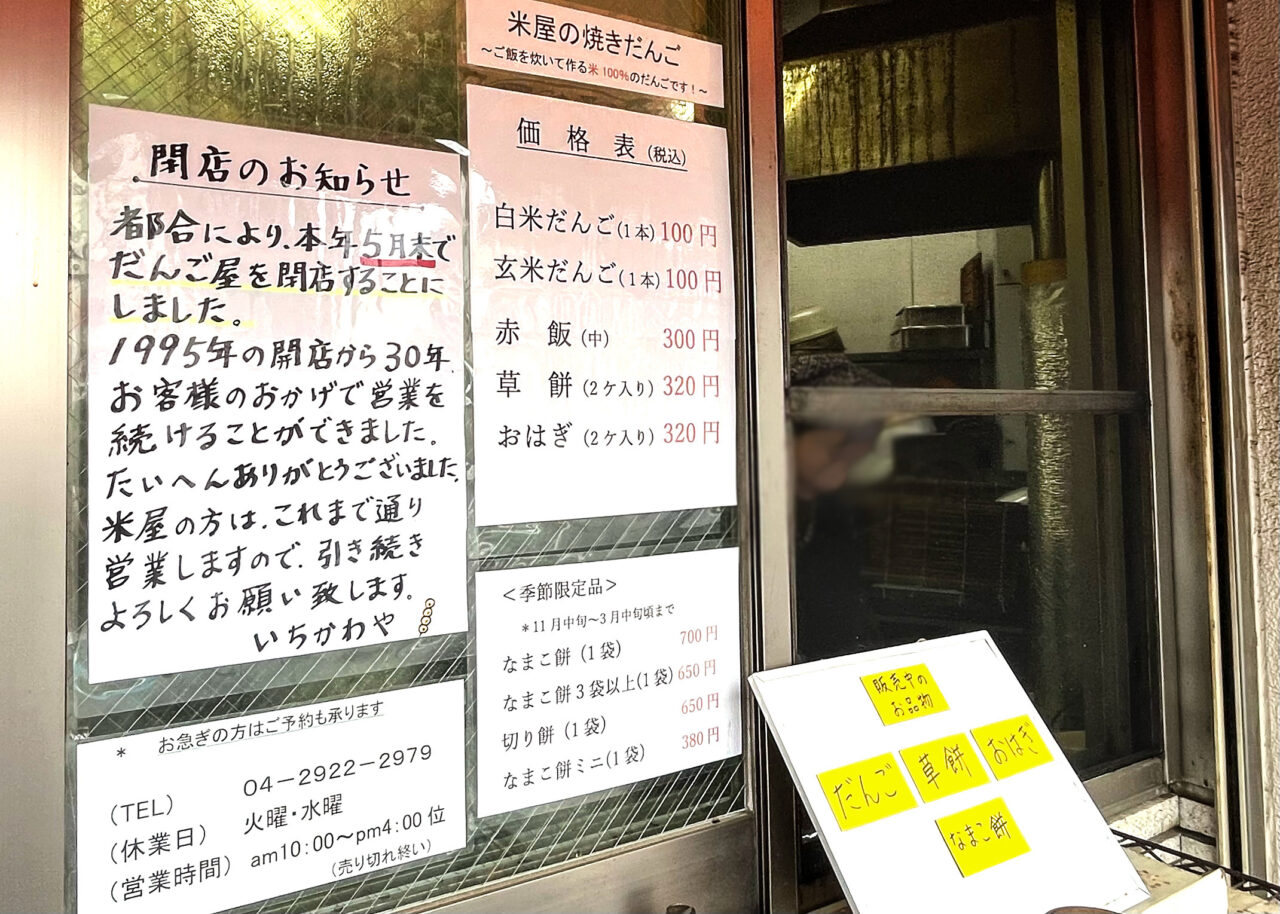 閉店のお知らせ
都合により、本年5月末で
だんご屋を閉店することに
しました。
1995年の開店から30年、
お客様のおかげで営業を
続けることができました。
たいへんありがとうございました。
米屋の方は、これまで通り
営業しますので、引き続き
よろしくお願い致します。
いちかわや
* お急ぎの方はご予約も承ります
(TEL) 04-2922-2979
(休業日) 火曜・水曜
(営業時間) am10:00~pm4:00位
(売り切れ終い)
米屋の焼きだんご
~ご飯を炊いて作る米100%のだんごです!~
価格表(税込)
白米だんご(1本) 100円
玄米だんご(1本) 100円
赤 飯 (中) 300円
草 餅 (2ケ入り) 320円
おはぎ (2ケ入り) 320円
<季節限定品>
*11月中旬~3月中旬頃まで
なまこ餅 (1袋) 700円
なまこ餅3袋以上(1袋) 650円
切り餅 (1袋) 650円
なまこ餅ミニ(1袋) 380円
販売中の
お品物
だんご
草餅
おはぎ
なまこ餅